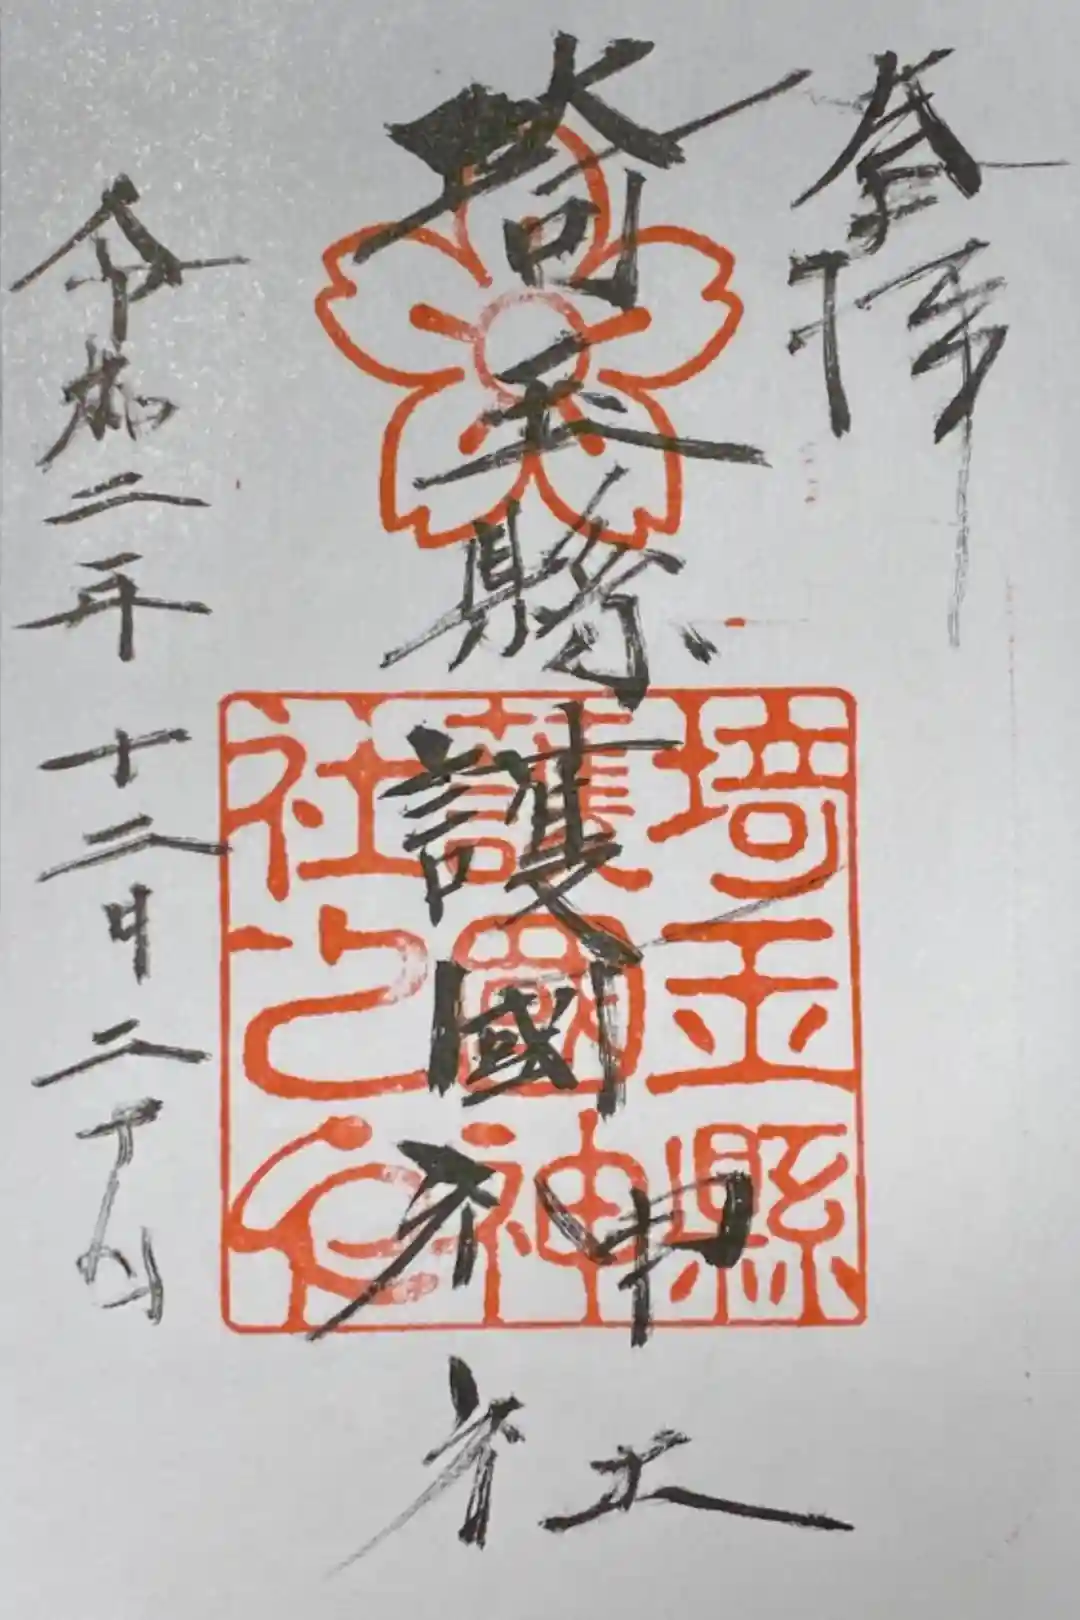 奉拝
埼玉縣護國神社
埼玉縣
護國神
社之印
令和二年十二月二十四日